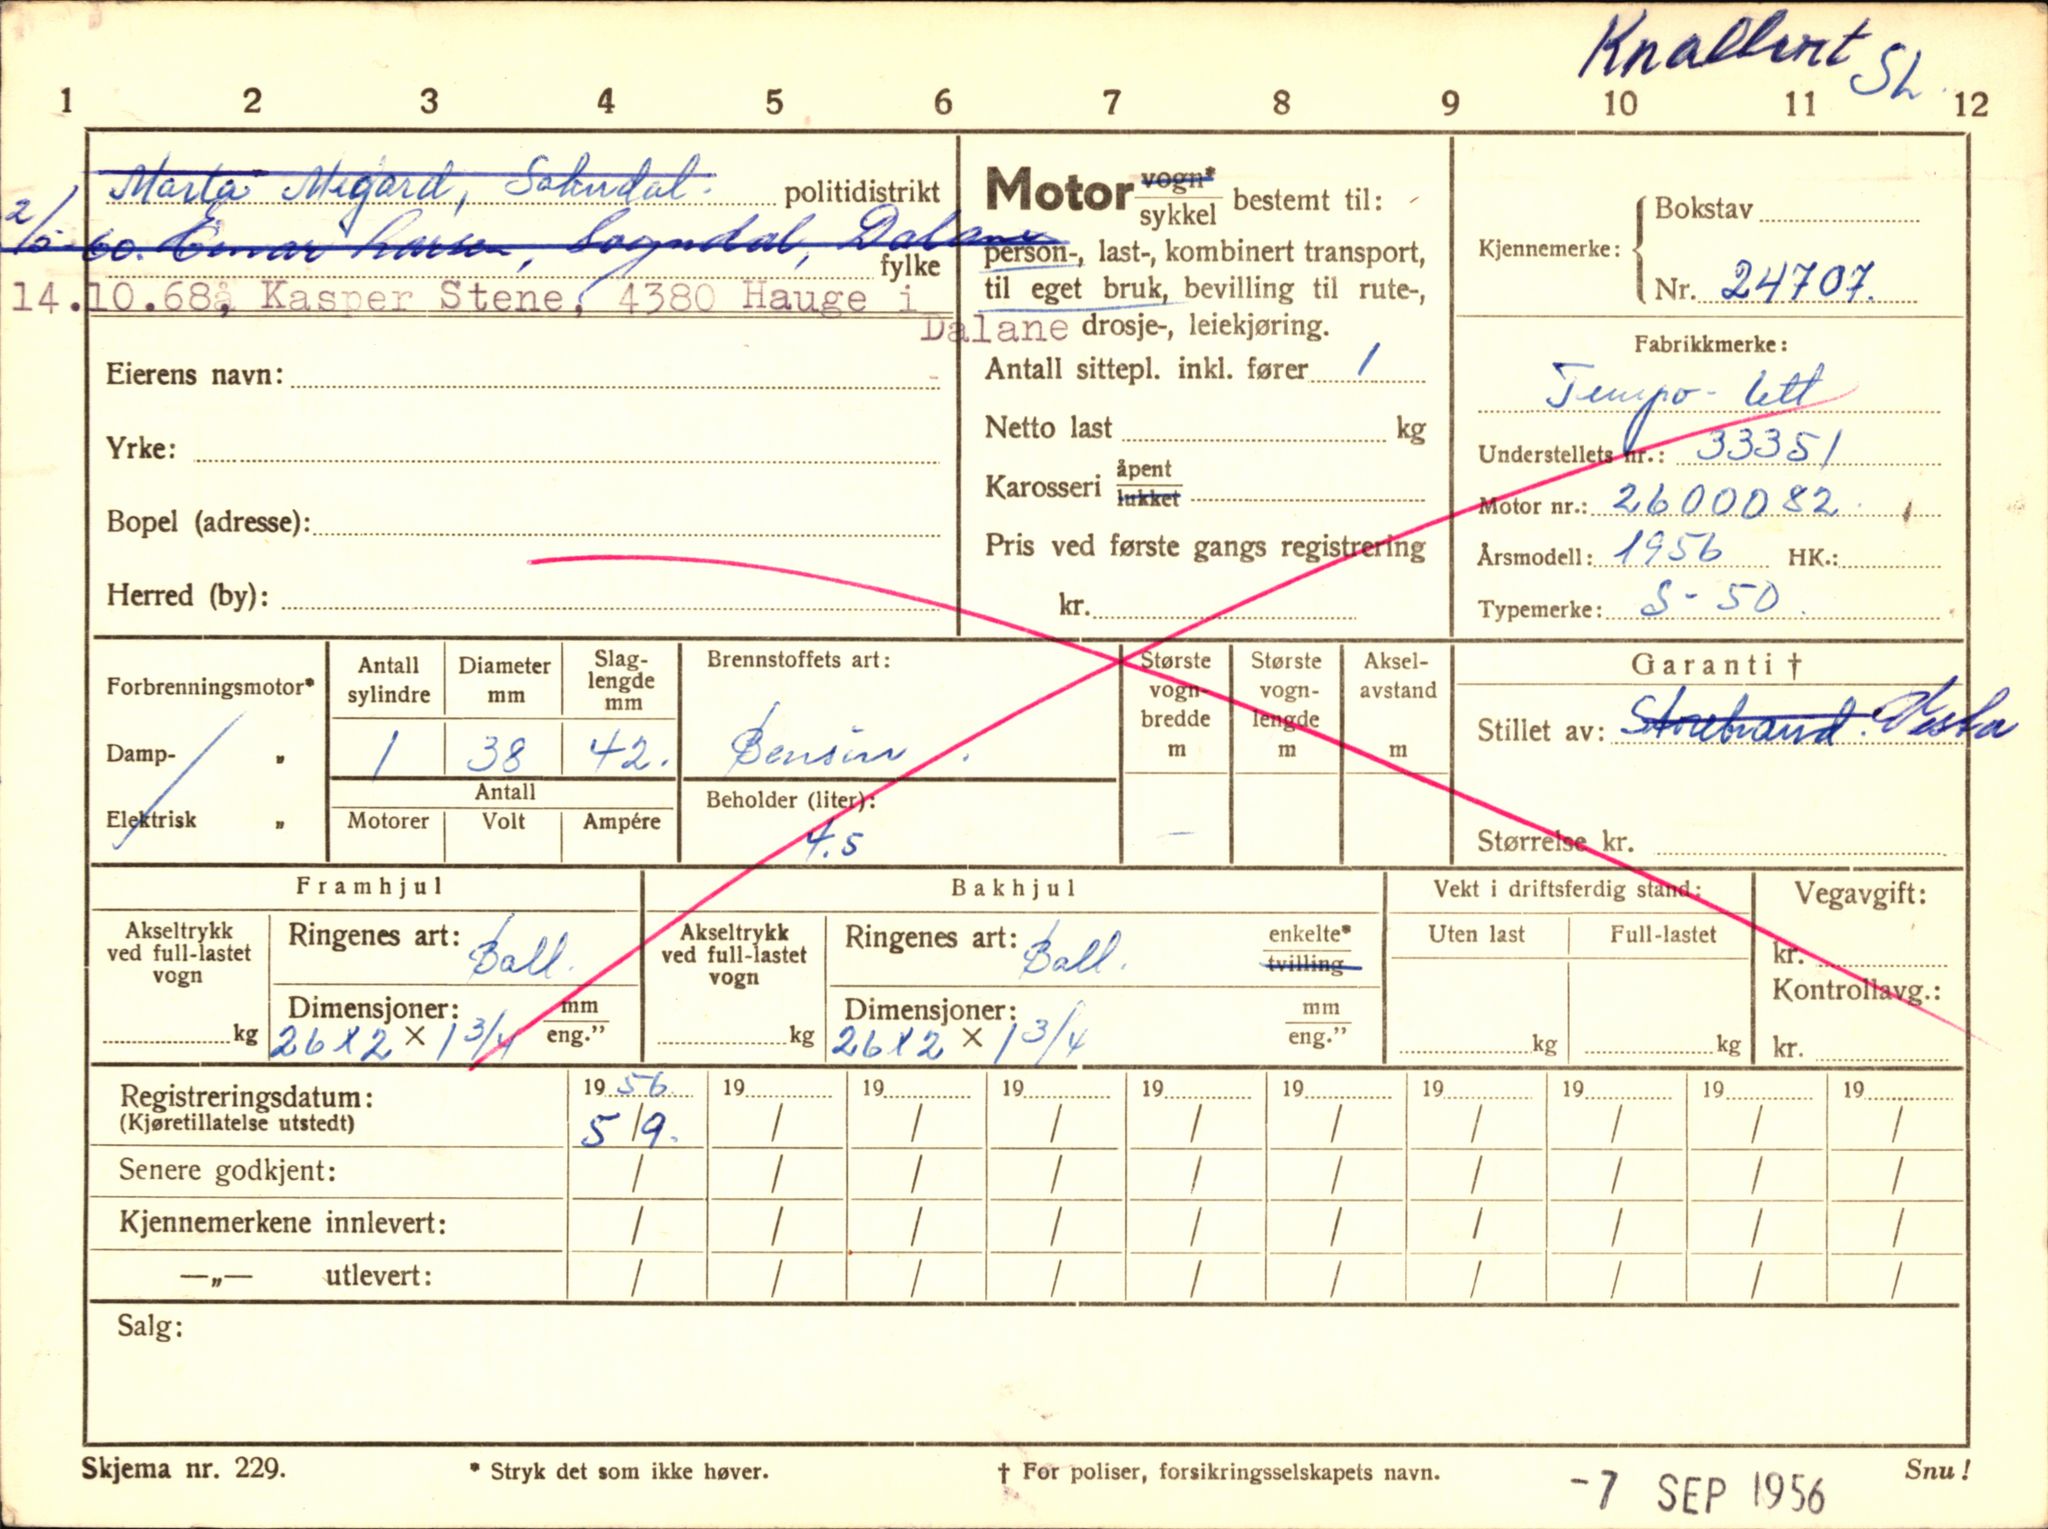 Knallert SL
1 2 3 4 5 6 7 8 9 10 11 12
Marta Migard, Sokndal. politidistrikt
2/5-60. Einar Larsen, Sogndal, Dalane fylke
14.10.68, Kasper Stene, 4380 Hauge i Dalane
Eierens navn:
Yrke:
Bopel (adresse):
Herred (by):
Motor vogn* / sykkel bestemt til:
person-, last-, kombinert transport,
til eget bruk, bevilling til rute-,
drosje-, leiekjøring.
Antall sittepl. inkl. fører 1
Netto last kg
Karosseri åpent / lukket
Pris ved første gangs registrering
kr.
Kjennemerke:
Bokstav
Nr. 24707.
Fabrikkmerke:
Tempo-lett
Understellets nr.: 33351
Motor nr.: 2600082
Årsmodell: 1956 HK.:
Typemerke: S-50.
Forbrenningsmotor*
Damp- „
Elektrisk „
Antall sylindre
Diameter mm
Slag-
lengde
mm
1 38 42.
Antall
Motorer Volt Ampére
Brennstoffets art:
Bensin.
Beholder (liter):
4.5
Største
vogn-
bredde
m
–
Største
vogn-
lengde
m
Aksel-
avstand
m
Garanti †
Stillet av: Storebrand. Vesta
Størrelse kr.
Framhjul
Akseltrykk
ved full-lastet
vogn
kg
Ringenes art: Ball.
Dimensjoner: mm / eng.”
26 x 2 x 1 3/4
Bakhjul
Akseltrykk
ved full-lastet
vogn
kg
Ringenes art: Ball. enkelte* / tvilling
Dimensjoner: mm / eng.”
26 x 2 x 1 3/4
Vekt i driftsferdig stand:
Uten last Full-lastet
kg kg
Vegavgift:
kr.
Kontrollavg.:
kr.
Registreringsdatum: 1956. 19 19 19 19 19 19 19 19 19
(Kjøretillatelse utstedt) 5/9. / / / / / / / / /
Senere godkjent: / / / / / / / / / /
Kjennemerkene innlevert: / / / / / / / / / /
—„— utlevert: / / / / / / / / / /
Salg:
Skjema nr. 229. * Stryk det som ikke høver. † For poliser, forsikringsselskapets navn. Snu!
-7 SEP 1956